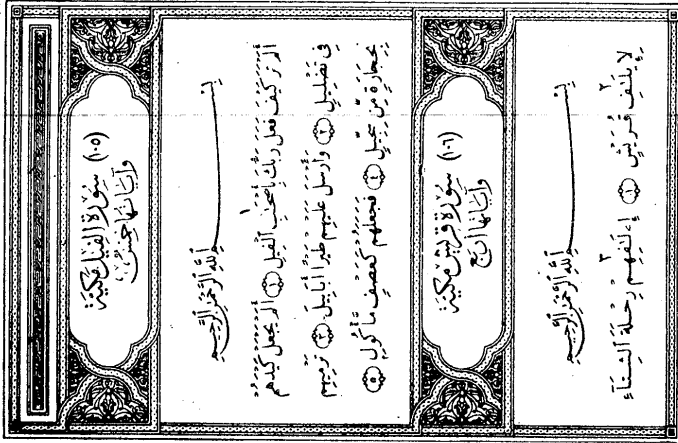 (١٠٥) سُورَةُ الفِيلِ مَكِيَّة
وَآيَاتُهَا خَمْسٌ
بِسْمِ ٱللَّهِ ٱلرَّحْمَٰنِ ٱلرَّحِيمِ
أَلَمْ تَرَ كَيْفَ فَعَلَ رَبُّكَ بِأَصْحَٰبِ ٱلْفِيلِ ١ أَلَمْ يَجْعَلْ كَيْدَهُمْ
فِى تَضْلِيلٍ ٢ وَأَرْسَلَ عَلَيْهِمْ طَيْرًا أَبَابِيلَ ٣ تَرْمِيهِم
بِحِجَارَةٍ مِّن سِجِّيلٍ ٤ فَجَعَلَهُمْ كَعَصْفٍ مَّأْكُولٍ ٥
(١٠٦) سُورَةُ قُرَيْشٍ مَكِيَّة
وَآيَاتُهَا أَرْبَع
بِسْمِ ٱللَّهِ ٱلرَّحْمَٰنِ ٱلرَّحِيمِ
لِإِيلَٰفِ قُرَيْشٍ ١ إِۦلَٰفِهِمْ رِحْلَةَ ٱلشِّتَآءِ